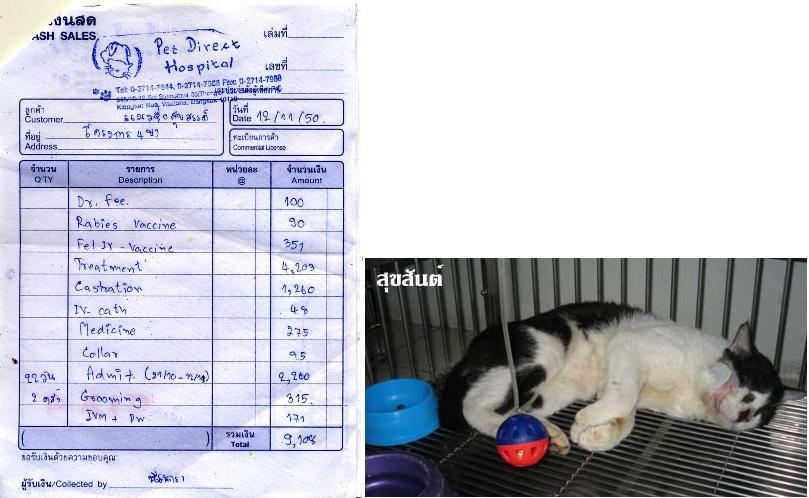 งินสด
ASH SALES
เล่มที่
Pet Direct
Hospital
เลขที่
Tel: 0-2714-7844, 0-2714-7588 Fax: 0-2714-7988
ลูกค้า
Customer
วันที่
Date 12/11/50.
ที่อยู่ โครงการ 4 ขา
Address
ทะเบียนการค้า
Commercial License
จำนวน รายการ หน่วยละ จำนวนเงิน
Q'TY Description @ Amount
Dr. Fee. 100
Rabies Vaccine 90
Fel IV - Vaccine 351
Treatment 4,203
Castration 1,260
IV- cath 48
Medicine 275
Collar 95
22 วัน Admit. 2,200
Grooming 315.
IVM + DW. 171
รวมเงิน
Total 9,108
ขอรับเงินด้วยความขอบคุณ
ผู้รับเงิน/Collected by
สุขสันต์